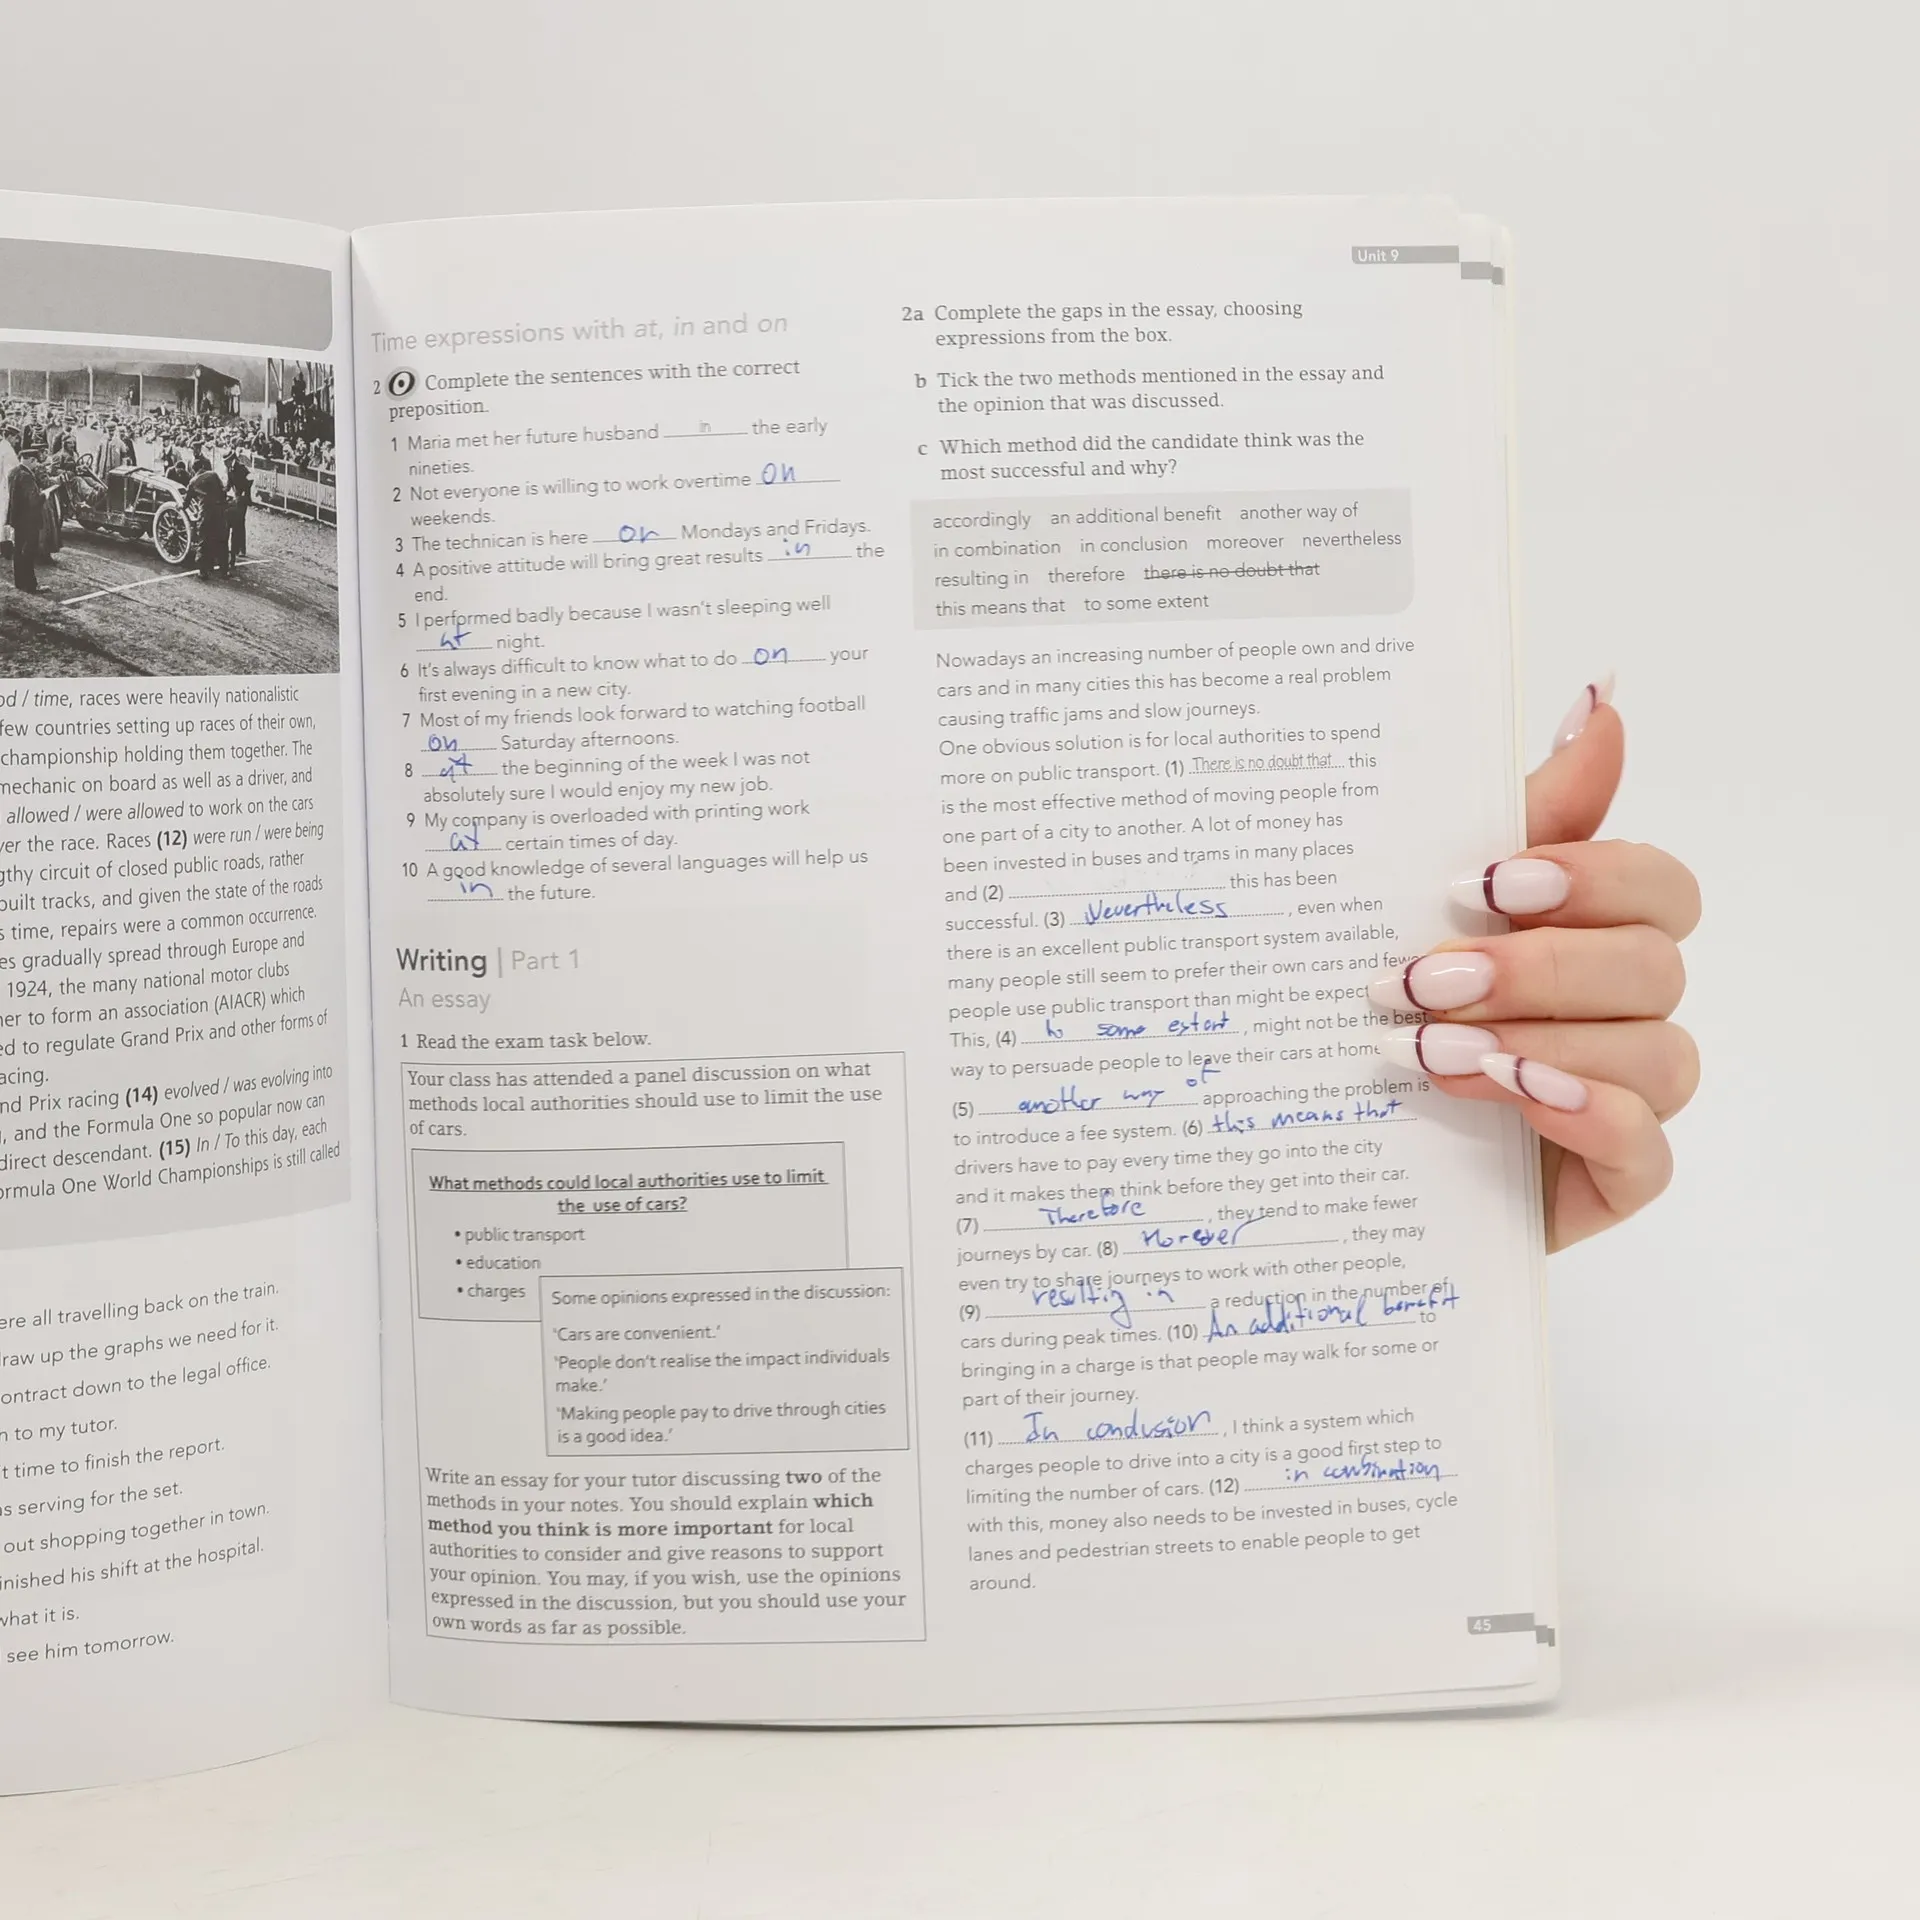 od / time, races were heavily nationalistic
few countries setting up races of their own,
championship holding them together. The
mechanic on board as well as a driver, and
allowed / were allowed to work on the cars
ver the race. Races (12) were run / were being
gthy circuit of closed public roads, rather
built tracks, and given the state of the roads
s time, repairs were a common occurrence.
es gradually spread through Europe and
1924, the many national motor clubs
her to form an association (AIACR) which
ed to regulate Grand Prix and other forms of
acing.
nd Prix racing (14) evolved / was evolving into
, and the Formula One so popular now can
direct descendant. (15) In / To this day, each
ormula One World Championships is still called
ere all travelling back on the train.
draw up the graphs we need for it.
ontract down to the legal office.
n to my tutor.
t time to finish the report.
as serving for the set.
out shopping together in town.
inished his shift at the hospital.
what it is.
see him tomorrow.
Time expressions with at, in and on
2 Complete the sentences with the correct
preposition.
1 Maria met her future husband in the early
nineties.
2 Not everyone is willing to work overtime on
weekends.
3 The technican is here on Mondays and Fridays.
4 A positive attitude will bring great results in the
end.
5 I performed badly because I wasn't sleeping well
at night.
6 It's always difficult to know what to do on your
first evening in a new city.
7 Most of my friends look forward to watching football
on Saturday afternoons.
8 at the beginning of the week I was not
absolutely sure I would enjoy my new job.
9 My company is overloaded with printing work
at certain times of day.
10 A good knowledge of several languages will help us
in the future.
Writing | Part 1
An essay
1 Read the exam task below.
Your class has attended a panel discussion on what
methods local authorities should use to limit the use
of cars.
What methods could local authorities use to limit
the use of cars?
• public transport
• education
• charges
Some opinions expressed in the discussion:
'Cars are convenient.'
'People don't realise the impact individuals
make.'
'Making people pay to drive through cities
is a good idea.'
Write an essay for your tutor discussing two of the
methods in your notes. You should explain which
method you think is more important for local
authorities to consider and give reasons to support
your opinion. You may, if you wish, use the opinions
expressed in the discussion, but you should use your
own words as far as possible.
Unit 9
2a Complete the gaps in the essay, choosing
expressions from the box.
b Tick the two methods mentioned in the essay and
the opinion that was discussed.
c Which method did the candidate think was the
most successful and why?
accordingly an additional benefit another way of
in combination in conclusion moreover nevertheless
resulting in therefore there is no doubt that
this means that to some extent
Nowadays an increasing number of people own and drive
cars and in many cities this has become a real problem
causing traffic jams and slow journeys.
One obvious solution is for local authorities to spend
more on public transport. (1) There is no doubt that this
is the most effective method of moving people from
one part of a city to another. A lot of money has
been invested in buses and trams in many places
and (2) this has been
successful. (3) Nevertheless , even when
there is an excellent public transport system available,
many people still seem to prefer their own cars and few
people use public transport than might be expect
This, (4) to some extent , might not be the best
way to persuade people to leave their cars at home
(5) another way of approaching the problem is
to introduce a fee system. (6) this means that
drivers have to pay every time they go into the city
and it makes them think before they get into their car.
(7) Therefore , they tend to make fewer
journeys by car. (8) Morever , they may
even try to share journeys to work with other people,
(9) resulting in a reduction in the number of
cars during peak times. (10) An additional benefit to
bringing in a charge is that people may walk for some or
part of their journey.
(11) In conclusion , I think a system which
charges people to drive into a city is a good first step to
limiting the number of cars. (12) in combination
with this, money also needs to be invested in buses, cycle
lanes and pedestrian streets to enable people to get
around.
45